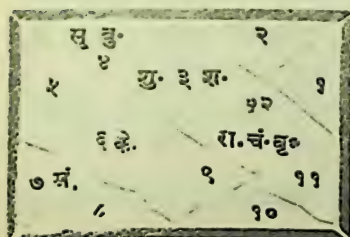 सु बु॰ २
४
५ शु॰ ३ श॰ १
१२
६ के॰ रा.चं॰बृ॰
७ मं. ९ ११
८ १०